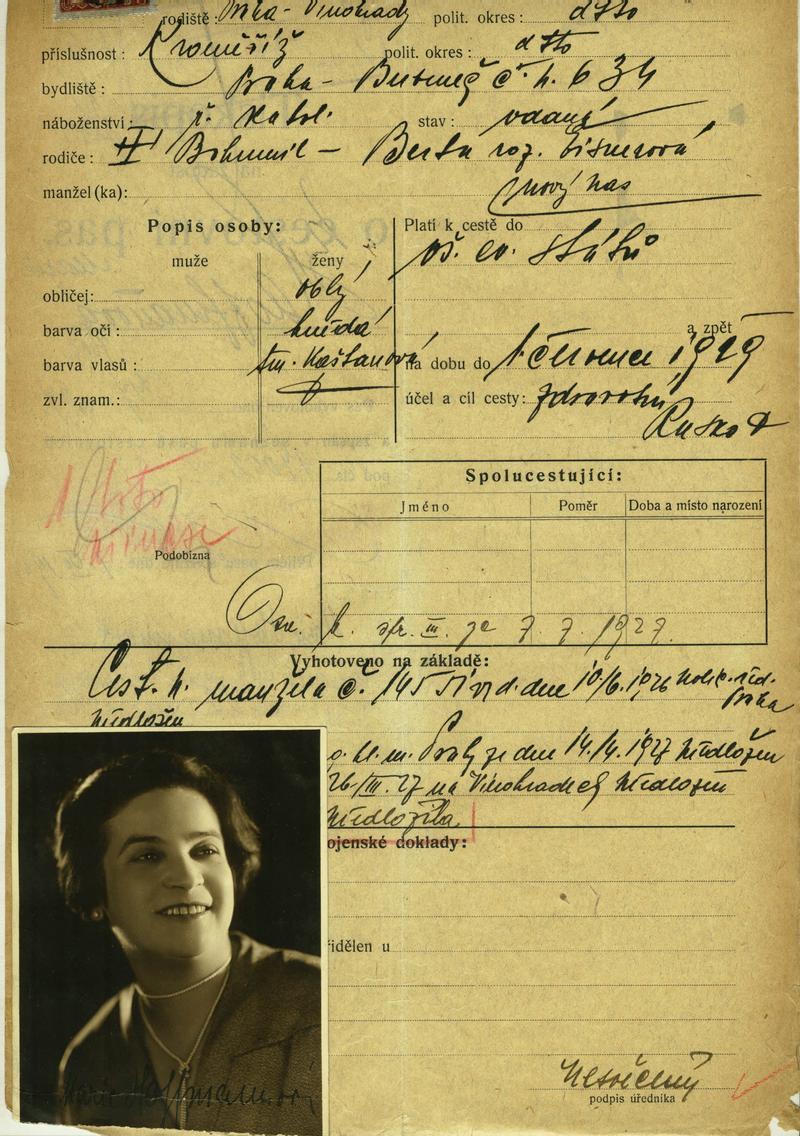 rodiště: Praha-Vinohrady polit. okres: dtto
příslušnost: Kroměříž polit. okres: dtto
bydliště: Praha - Bubeneč č. h. 634
náboženství: ř. katol. stav: vdaná
rodiče: Bohumil - Berta roz.
manžel (ka):
Popis osoby:
muže ženy
obličej: oblý
barva očí: hnědá
barva vlasů: tm. kaštanová
zvl. znam.:
Platí k cestě do
vš. ev. států
a zpět
na dobu do 1 července 1929
účel a cíl cesty: zdravotní
Rusko
1 foto
Podobizna
Spolucestující:
Jméno Poměr Doba a místo narození
III. 7. 7. 1927.
Vyhotoveno na základě:
Cest. p. manžela č. 145 dne 10/6. 1926 Praha
m. Prahy ze dne 14./4. 1927
26/III. 27 na Vinohradech
předložila.
ojenské doklady:
řidělen u
podpis úředníka
Marie Hoffmannová